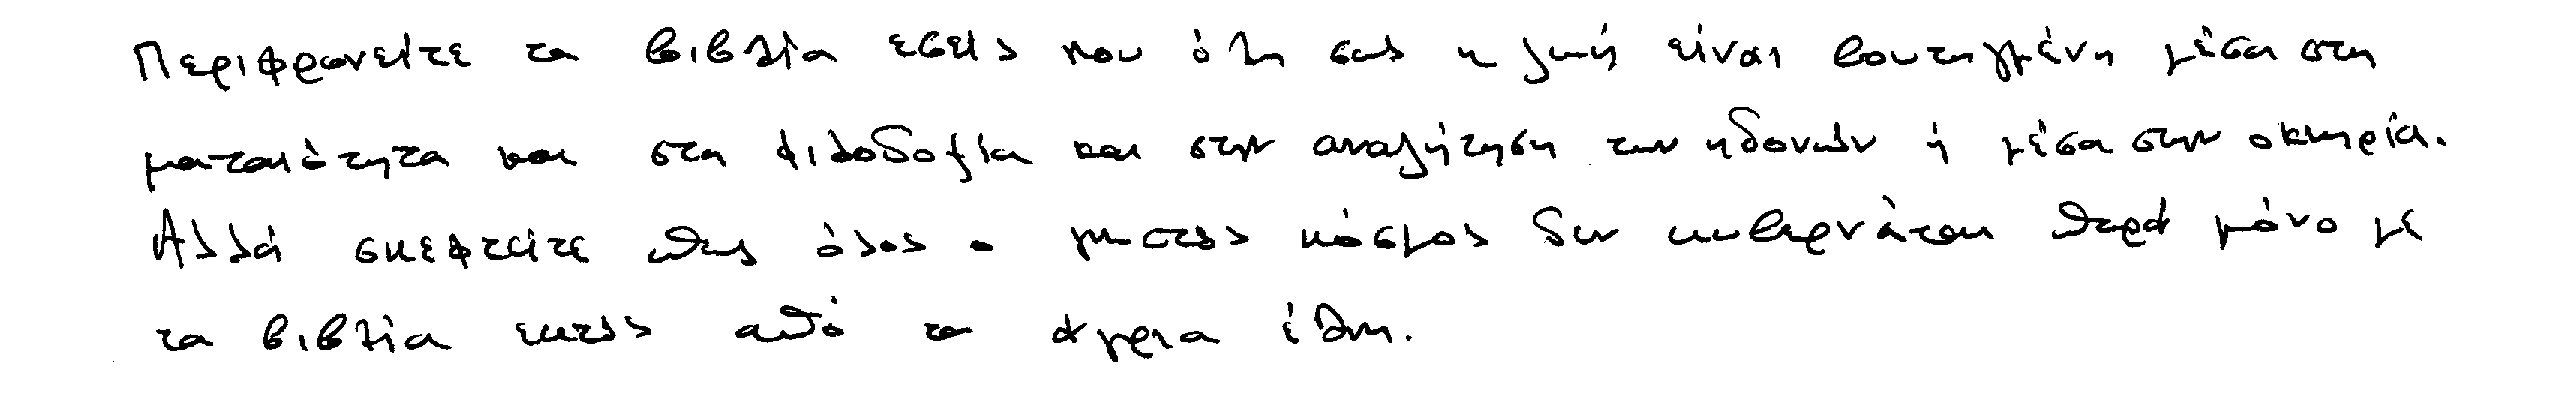 Περιφρονείτε τα βιβλία εσείς που όλη σας η ζωή είναι βουτηγμένη μέσα στη
ματαιότητα και στη φιλοδοξία και στην αναζήτηση των ηδονών ή μέσα στην οκνηρία.
Αλλά σκεφτείτε πως όλος ο γνωστός κόσμος δεν κυβερνάται παρά μόνο με
τα βιβλία εκτός από τα άγρια έθνη.